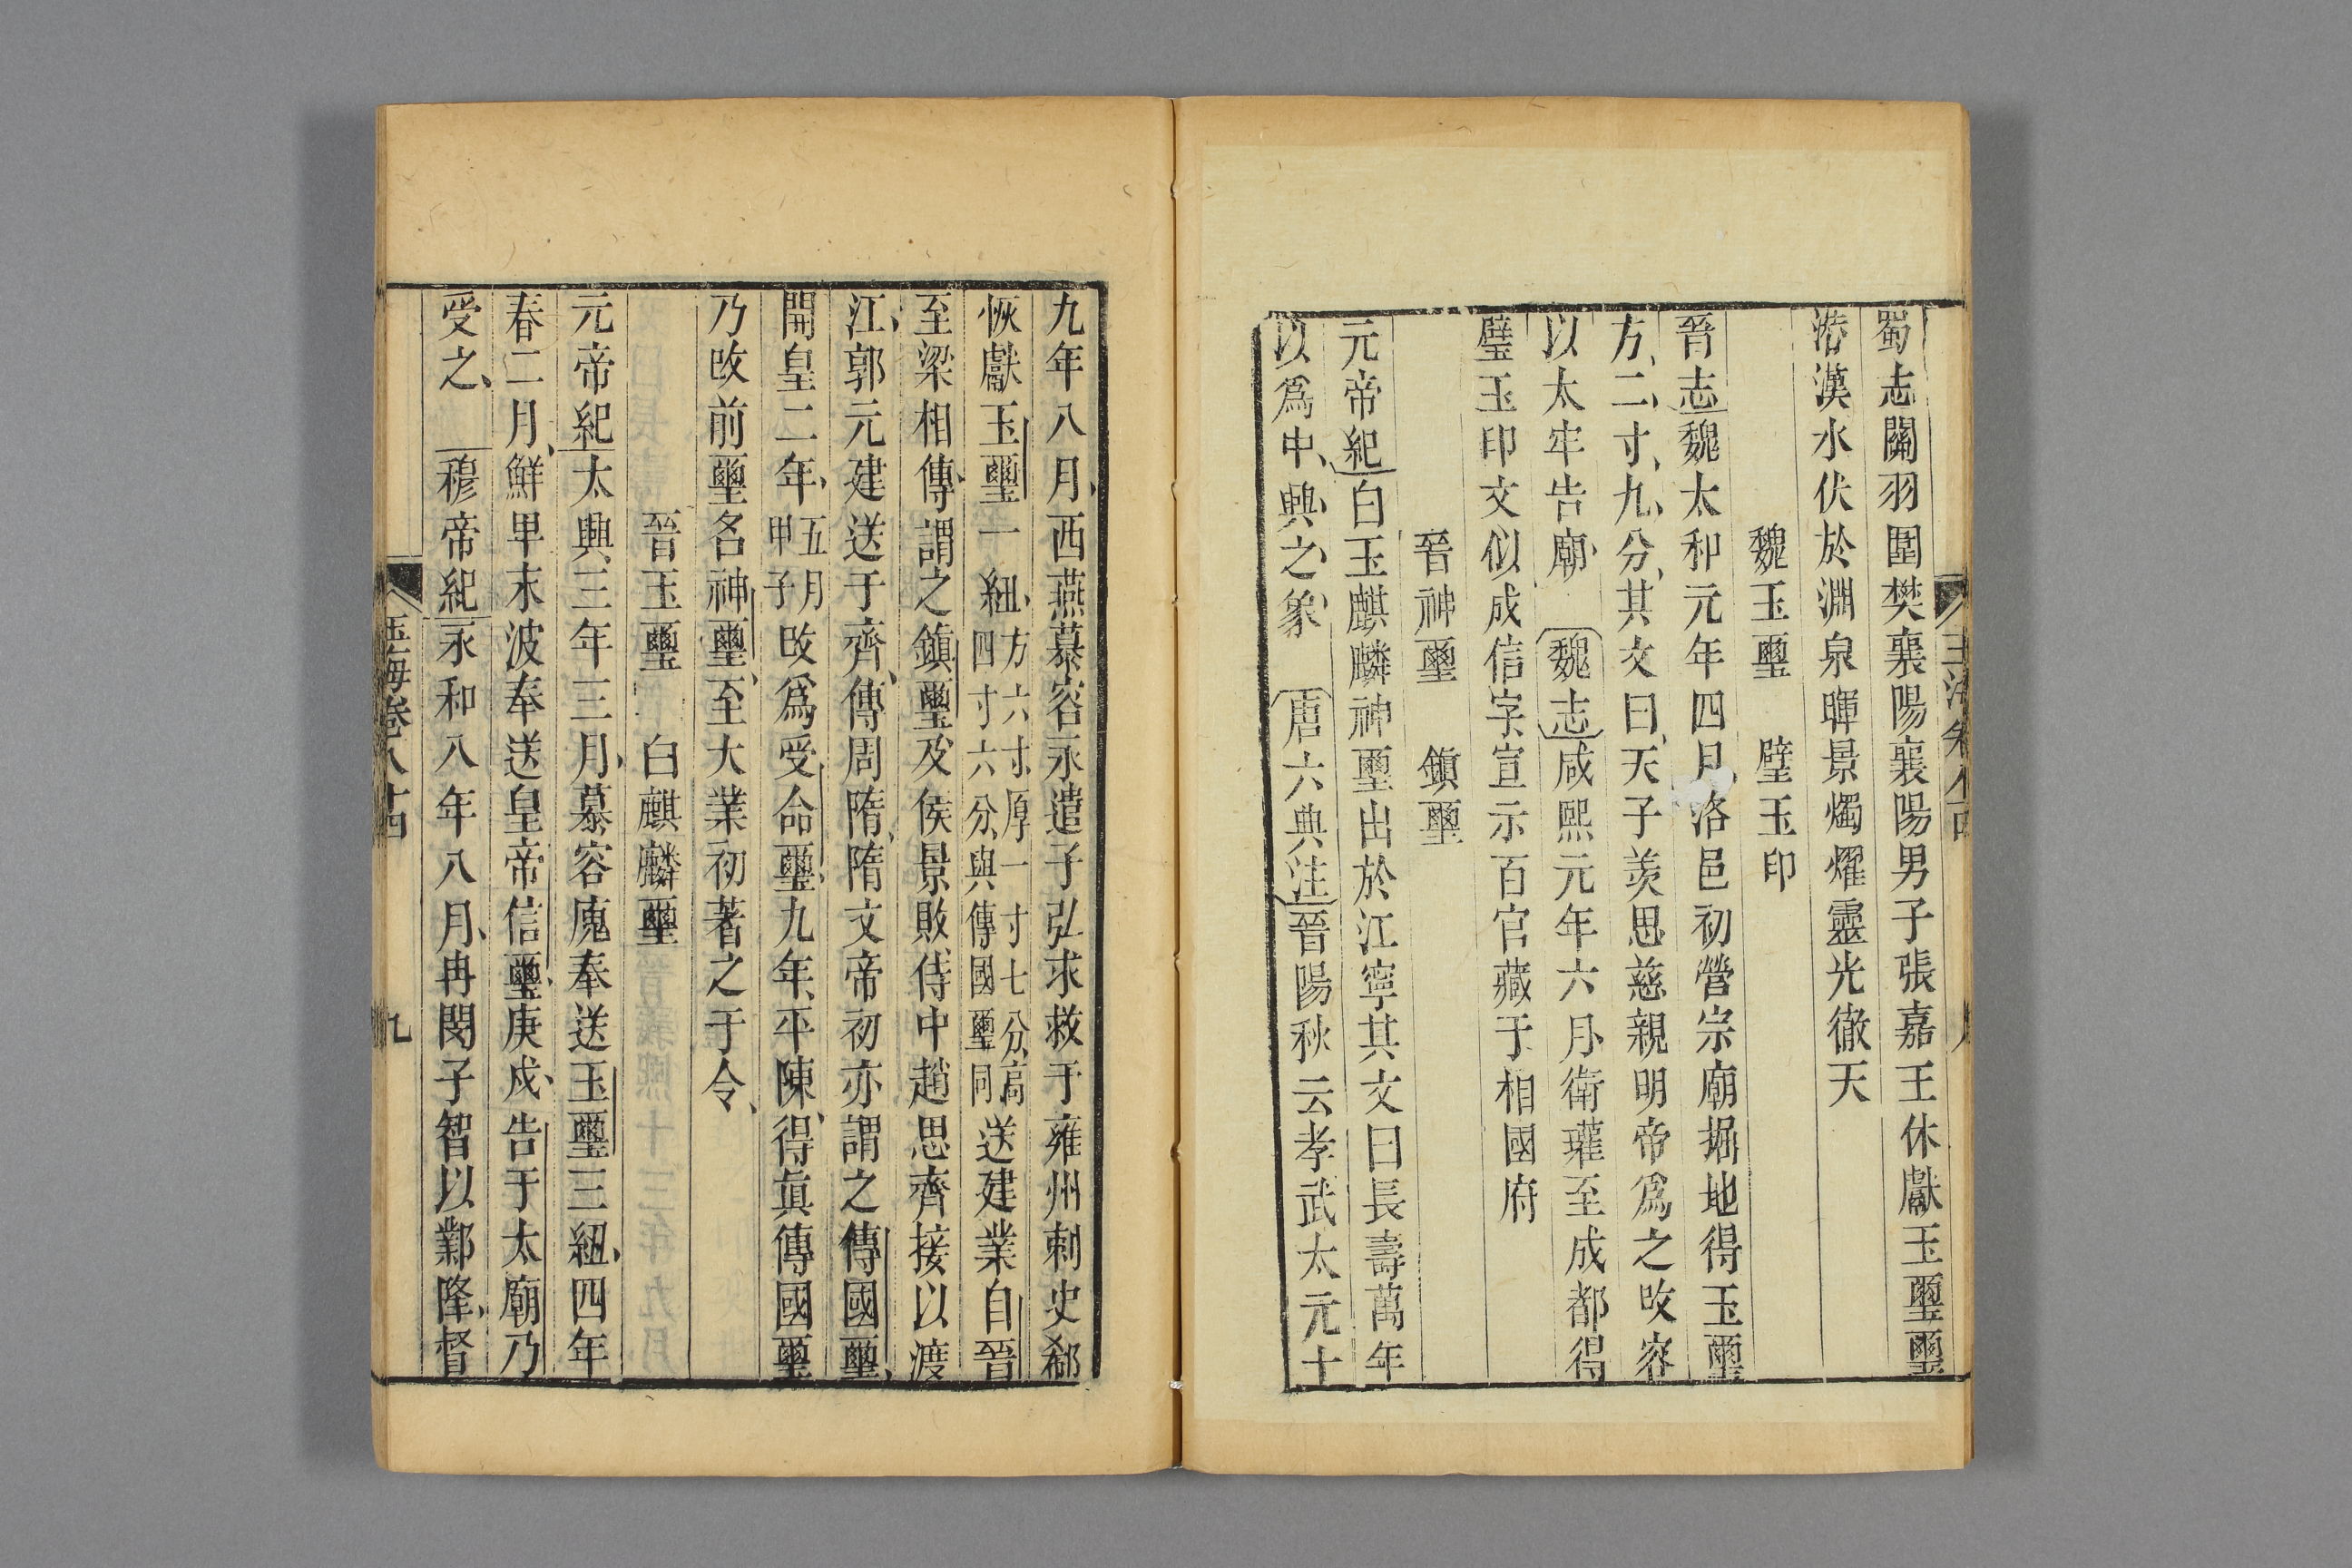 蜀志關羽圍樊襄陽襄陽男子張嘉王休獻玉璽璽
潛漢水伏於淵泉暉景燭燿靈光徹天
魏玉璽 璧玉印
晉志魏太和元年四月洛邑初營宗廟掘地得玉璽
方二寸九分其文曰天子羨思慈親明帝爲之改容
以太牢告廟 魏志咸熙元年六月衛瓘至成都得
璧玉印文似成信字宣示百官藏于相國府
晉神璽 鎮璽
元帝紀白玉麒麟神璽出於江寧其文曰長壽萬年
以爲中興之象 唐六典注晉陽秋云孝武太元十
九年八月西燕慕容永遣子弘求救于雍州刺史郄
恢獻玉璽一紐方六寸厚一寸七分高四寸六分與傳國璽同送建業自晉
至梁相傳謂之鎮璽及侯景敗侍中趙思齊接以渡
江郭元建送于齊傳周隋隋文帝初亦謂之傳國璽
開皇二年五月甲子改爲受命璽九年平陳得眞傳國璽
乃改前璽名神璽至大業初著之于令
晉玉璽 白麒麟璽
元帝紀太興三年三月慕容廆奉送玉璽三紐四年
春二月鮮卑末波奉送皇帝信璽庚戍告于太廟乃
受之 穆帝紀永和八年八月冉閔子智以鄴降督
玉海卷八十四 九